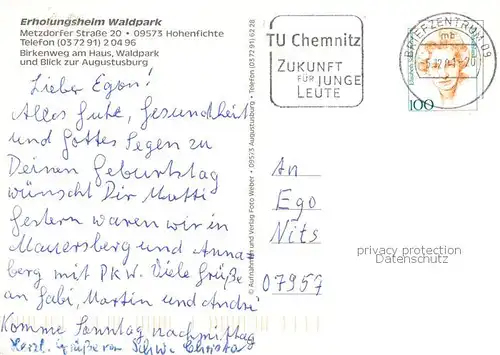 Erholungsheim Waldpark
Metzdorfer Straße 20 • 09573 Hohenfichte
Telefon (03 72 91) 2 04 96
Birkenweg am Haus, Waldpark
und Blick zur Augustusburg
Lieber Egon!
Alles Gute, Gesundheit
und Gottes Segen zu
Deinen Geburtstag
wünscht Dir Mutti
gestern waren wir in
Mauersberg und Anna-
berg mit PKW. Viele Grüße
an Gabi, Martin und André
Komme Sonntag nachmittag
Herzl. Grüße von Schw. Christa
© Aufnahme und Verlag Foto Weber • 09573 Augustusburg • Telefon (03 72 91) 62 28
TU Chemnitz
ZUKUNFT
FÜR JUNGE
LEUTE
BRIEFZENTRUM 09
mb
100
An
Ego
Nits
07957
privacy protection
Datenschutz